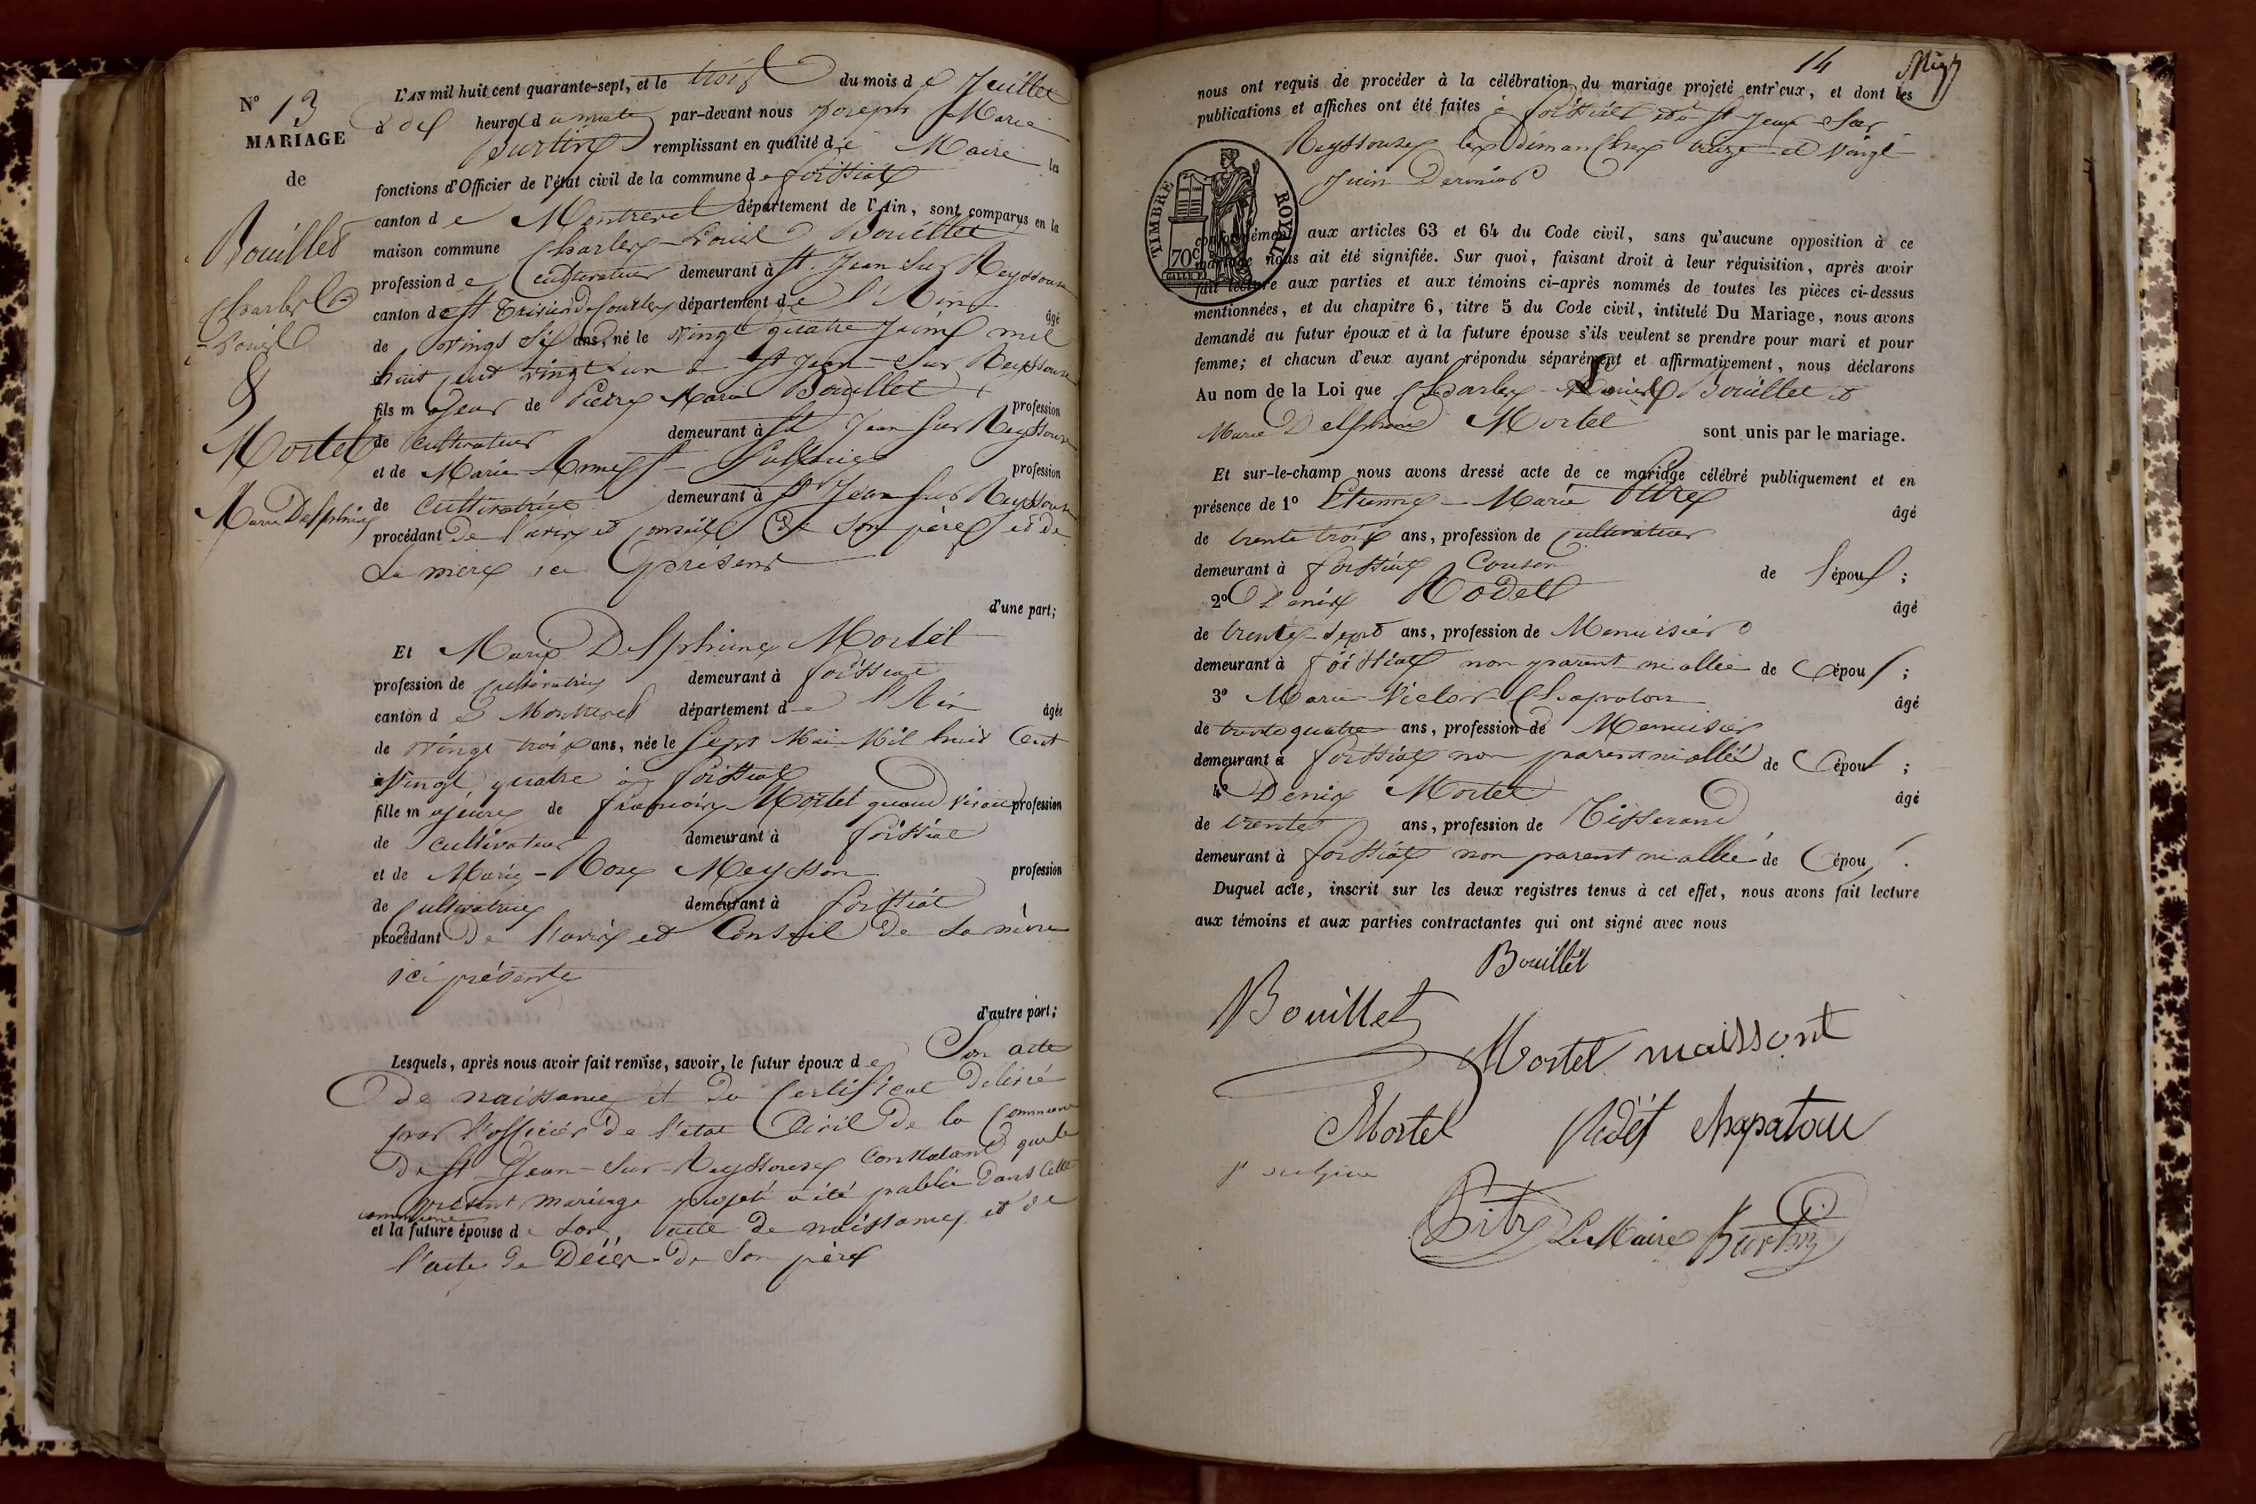 N° 13
MARIAGE
de
Bouillet
Charles
Louis
&
Mortel
Marie Delphine
L'AN mil huit cent quarante-sept, et le trois du mois de Juillet
à dix heures du matin par-devant nous Joseph Marie
Burtin remplissant en qualité de Maire les
fonctions d'Officier de l'état civil de la commune de foissiat
canton de Montrevel département de l'Ain, sont comparus en la
maison commune Charles-Louis Bouillet
profession de Cultivateur demeurant à St Jean Sur Reyssouze
canton de St Trivier de Courtes département de l'Ain âgé
de vingt six ans, né le vingt quatre juin mil
huit cent vingt un à St Jean-Sur Reyssouze
fils majeur de Pierre Marie Bouillet profession
de Cultivateur demeurant à St Jean Sur Reyssouze
et de Marie profession
de Cultivatrice demeurant à St Jean Sur Reyssouze
procédant de l'avis et conseil de son père et de
Sa mère ici présent
d'une part;
Et Marie Delphine Mortel
profession de cultivatrice demeurant à foissiat
canton de Montrevel département de l'Ain âgée
de vingt trois ans, née le Sept Mai Mil huit Cent
Vingt quatre à foissiat
fille majeure de françois Mortel quand vivait profession
de cultivateur demeurant à foissiat
et de Marie-Rose Meysson profession
de Cultivatrice demeurant à foissiat
procédant De l'avis et Conseil De Sa mère
ici présente
d'autre part;
Lesquels, après nous avoir fait remise, savoir, le futur époux de Son acte
De naissance et du Certificat Délivré
par l'officier De l'état Civil De la Commune
De St Jean-Sur-Reyssouze Constatant que le
présent mariage projeté a été publié Dans Cette
commune
et la future épouse de Son acte De naissance et de
l'acte De Décès De Son père
14
nous ont requis de procéder à la célébration du mariage projeté entr'eux, et dont les
publications et affiches ont été faites à foissiat et à St Jean-Sur
Reyssouze les dimanches treize et vingt
Juin Dernier
TIMBRE ROYAL
70c
conformément aux articles 63 et 64 du Code civil, sans qu'aucune opposition à ce
mariage nous ait été signifiée. Sur quoi, faisant droit à leur réquisition, après avoir
fait lecture aux parties et aux témoins ci-après nommés de toutes les pièces ci-dessus
mentionnées, et du chapitre 6, titre 5 du Code civil, intitulé Du Mariage, nous avons
demandé au futur époux et à la future épouse s'ils veulent se prendre pour mari et pour
femme; et chacun d'eux ayant répondu séparément et affirmativement, nous déclarons
Au nom de la Loi que Charles-Louis Bouillet et
Marie Delphine Mortel sont unis par le mariage.
Et sur-le-champ nous avons dressé acte de ce mariage célébré publiquement et en
présence de 1° Etienne-Marie Pitre âgé
de trente trois ans, profession de Cultivateur
demeurant à foissiat Cousin de l'époux;
2° Denis Rodet âgé
de trente-sept ans, profession de Menuisier
demeurant à foissiat non parent ni allié de l'époux;
3° Marie-Victor Chapaton âgé
de trente quatre ans, profession de Menuisier
demeurant à foissiat non parent ni allié de l'époux;
4° Denis Mortel âgé
de trente ans, profession de Tisserand
demeurant à foissiat non parent ni allié de l'époux.
Duquel acte, inscrit sur les deux registres tenus à cet effet, nous avons fait lecture
aux témoins et aux parties contractantes qui ont signé avec nous
Bouillet
Bouillet
Mortel maissont
Mortel Rodet chapatou
Pitre Le Maire Burtin